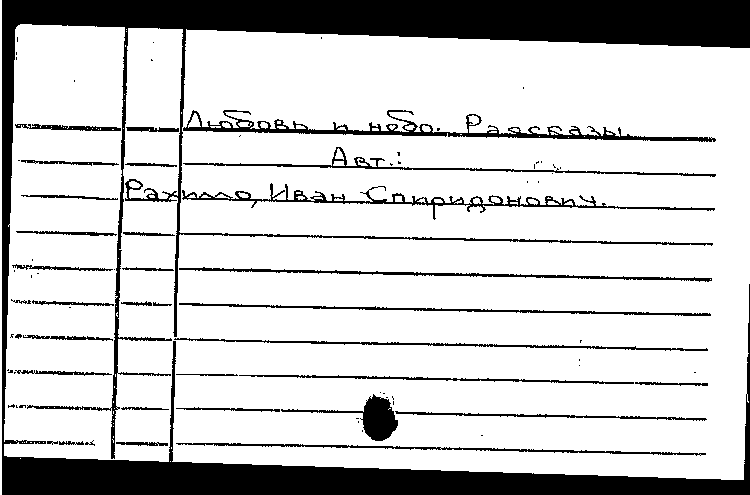 Любовь и небо. Рассказы.
Авт.:
Рахилло, Иван Спиридонович.